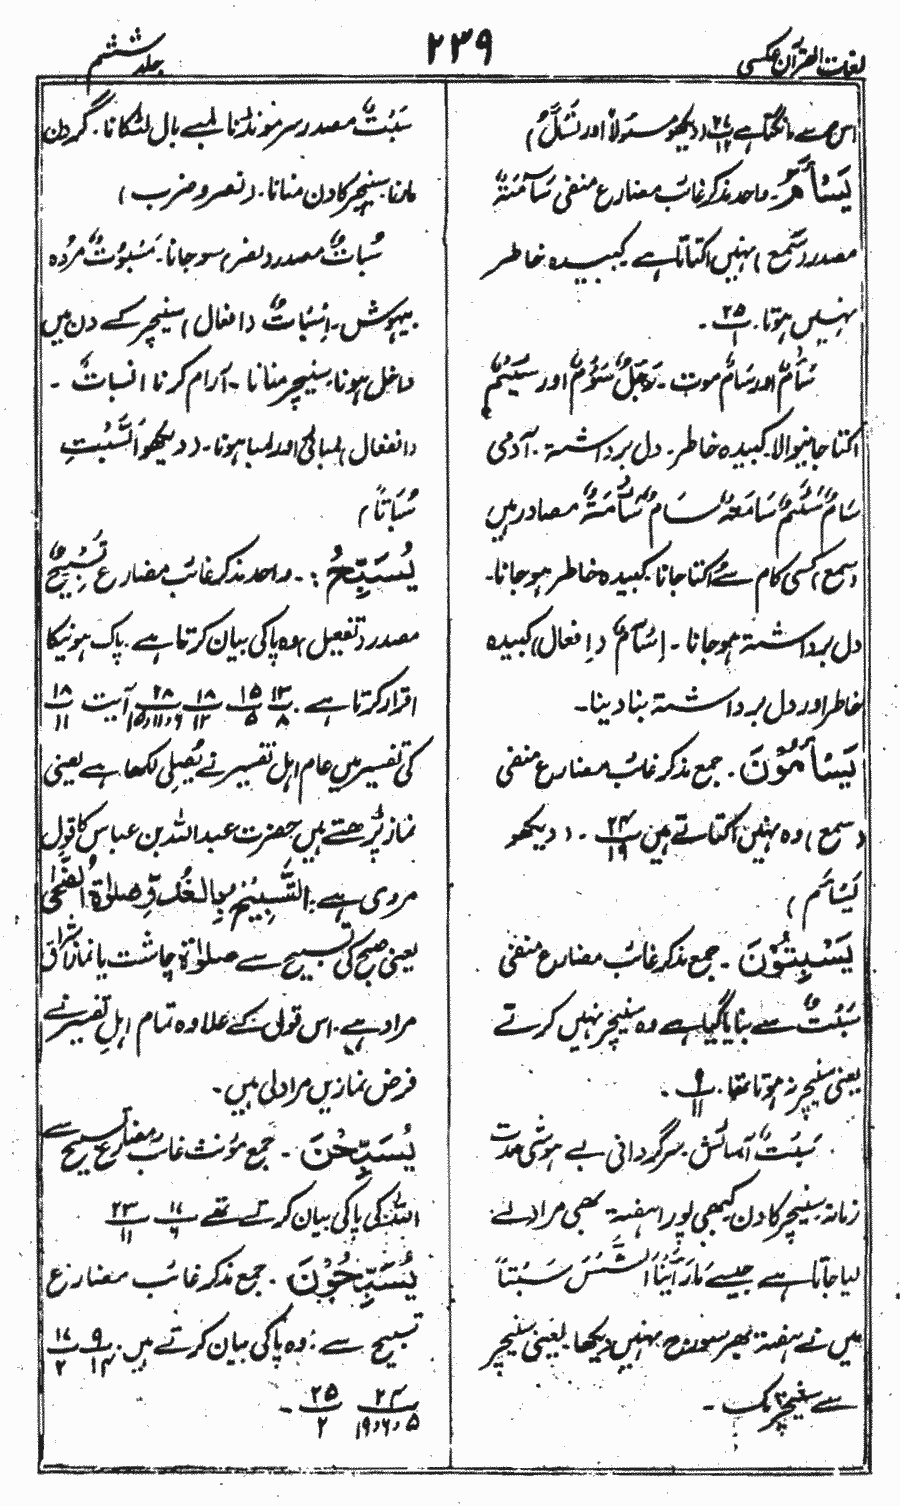 لغات القرآن عکسی
۲۳۹
جلد ششم
اس سے مانگتا ہے ۲۷/۱۲ (دیکھو مسئولاً اور نَسْئَلُ)
یَسْأَمُ۔ واحد مذکر غائب مضارع منفی سَآمَۃٌ
مصدر (سَمِعَ) نہیں اکتاتا ہے کبیدہ خاطر
نہیں ہوتا۔ ۲۵/۱ ۔
سَأْمٌ اور سَامٌ موت ۔ رَجُلٌ سَؤُمٌ اور سَئِیْمٌ
اکتا جانیوالا۔ کبیدہ خاطر۔ دل برداشتہ۔ آدمی
مصادر ہیں
(سمع) کسی کام سے اُکتا جانا کبیدہ خاطر ہو جانا۔
دل برداشتہ ہو جانا ۔ اِسْآمٌ (اِفعال) کبیدہ
خاطر اور دل برداشتہ بنا دینا۔
یَسْأَمُوْنَ ۔ جمع مذکر غائب مضارع منفی
(سمع) وہ نہیں اکتاتے ہیں ۲۴/۱۹ ۔ (دیکھو
یَسْأَم)
یَسْبِتُوْنَ ۔ جمع مذکر غائب مضارع منفی
سَبْتٌ سے بنایا گیا ہے وہ سنیچر نہیں کرتے
یعنی سنیچر نہ ہوتا تھا۔ ۹/۱۱ ۔
سَبْتٌ آسائش۔ سرگردانی بے ہوشی مدت
زمانہ سنیچر کا دن کبھی پورا ہفتہ بھی مراد لے
لیا جاتا ہے جیسے مَا رَأَیْنَا الشَّمْسَ سَبْتًا
میں نے ہفتہ بھر سورج نہیں دیکھا۔ یعنی سنیچر
سے سنیچر تک ۔
سَبْتٌ مصدر سر مونڈنا لمبے بال لٹکانا۔ گردن
مارنا۔ سنیچر کا دن منانا۔ (نصر و ضرب)
سُبَاتٌ مصدر (نصر) سو جانا۔ مَسْبُوْتٌ مُردہ
بیہوش۔ اِسْبَاتٌ (افعال) سنیچر کے دن میں
داخل ہونا۔ سنیچر منانا ۔ آرام کرنا انسباتٌ ۔
(انفعال) لمبائی اور لمبا ہونا۔ (دیکھو اَلسَّبْتِ
سُبَاتاً)
یُسَبِّحُ:۔ واحد مذکر غائب مضارع تَسْبِیْحٌ
مصدر (تفعیل) وہ پاکی بیان کرتا ہے۔ پاک ہونیکا
اقرار کرتا ہے ۔ ۱۳/۸ ۱۵/۵ ۱۸/۱۲ ۲۸/۶،۱۱،۱۵ آیت ۱۸/۱۱
کی تفسیر میں عام اہل تفسیر نے یُصَلِّی لکھا ہے یعنی
نماز پڑھتے ہیں حضرت عبداللہ بن عباس کا قول
مروی ہے: التَّسْبِیْحُ بِالْغُدُوِّ صلوٰۃُ الضُّحٰی
یعنی صبح کی تسبیح سے صلوٰۃ چاشت یا نماز اشراق
مراد ہے۔ اس قول کے علاوہ تمام اہلِ تفسیر نے
فرض نمازیں مراد لی ہیں۔
یُسَبِّحْنَ ۔ جمع مؤنث غائب مضارع تسبیح سے
اللہ کی پاکی بیان کرتے تھے ۱۷/۶ ۲۳/۱۱
یُسَبِّحُوْنَ۔ جمع مذکر غائب مضارع
تسبیح سے: وہ پاکی بیان کرتے ہیں۔ ۹/۱۴ ۱۷/۲
۲۴/۵،۶،۱۹ ۲۵/۲ ۔